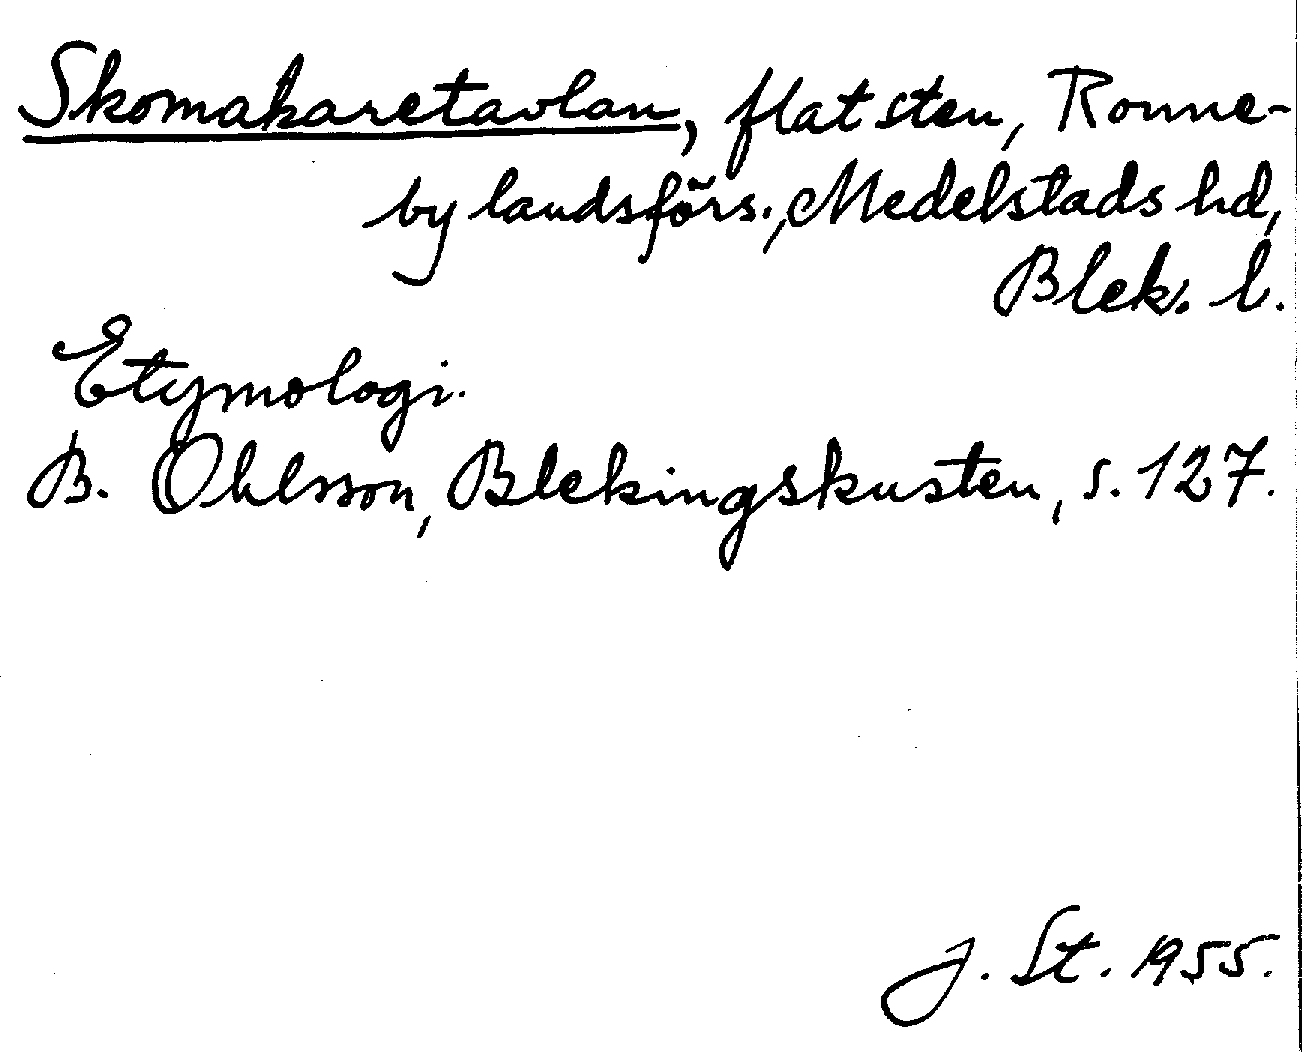 Skomakaretavlan, flat sten, Ronne-
by landsförs., Medelstads hd,
Blek. l.
Etymologi.
B. Ohlsson, Blekingskusten, s. 127.
J. St. 1955.